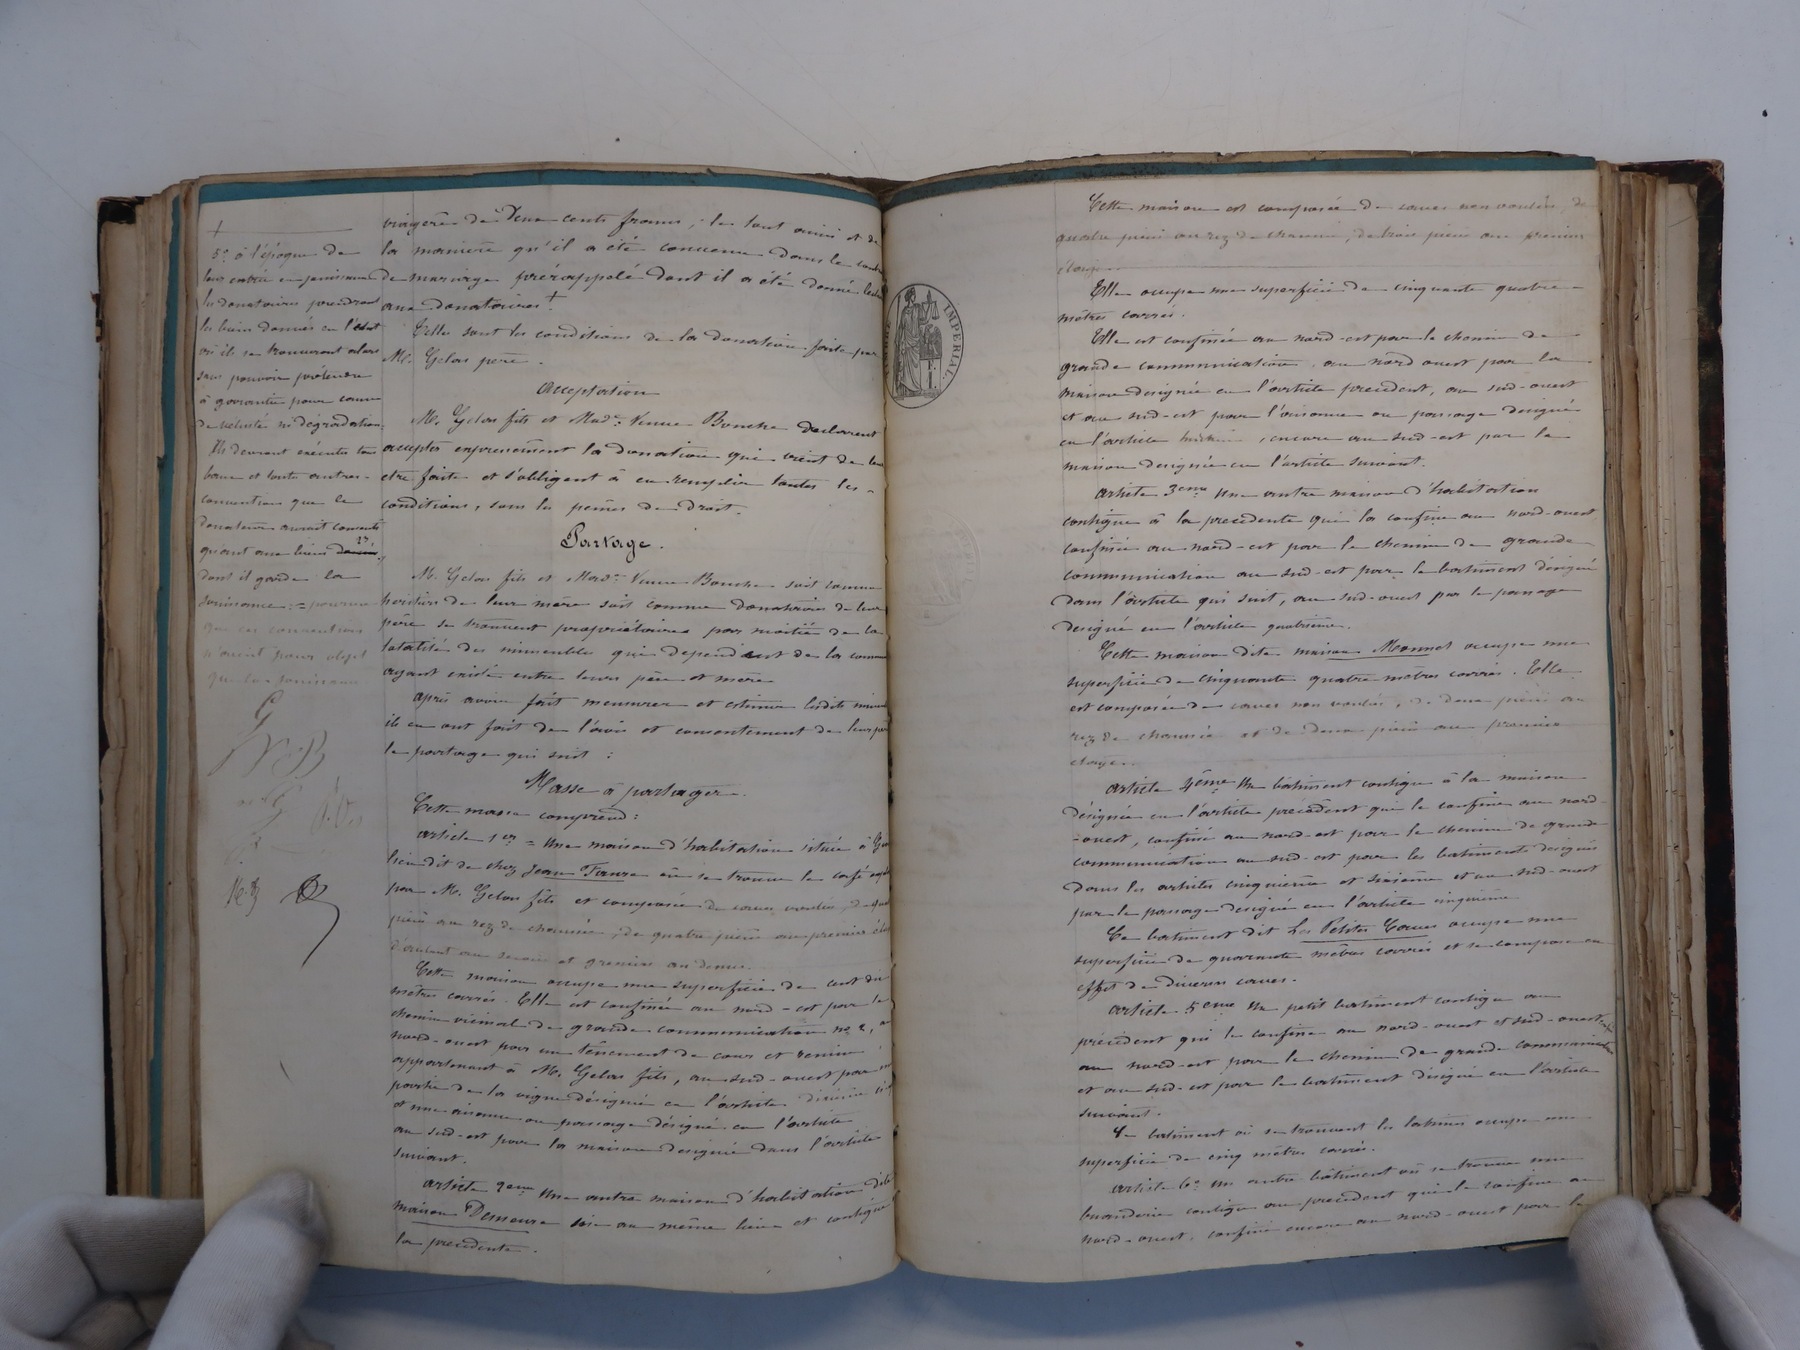 +
5° à l'époque de
leur entrée en jouissance
les donataires prendront
les biens donnés en l'état
où ils se trouveront alors
sans pouvoir prétendre
à garantie pour cause
de vétusté ni dégradation.
Ils devront exécuter tous
baux et toutes autres
conventions que le
donateur aurait consenti
quant aux biens
dont il garde la
jouissance = pourvu
que ces conventions
n'aient pour objet
que la jouissance
viagère de Deux cents francs, le tout ainsi et de
la manière qu'il a été convenu dans le contrat
de mariage prérappelé dont il a été donné lecture
aux donataires +
Telles sont les conditions de la donation faite par
M. Gelas père.
Acceptation
M. Gelas fils et Made Veuve Bouche déclarent
accepter expressément la donation qui vient de leur
etre faite et s'obligent à en remplir toutes les
conditions, sous les peines de droit.
Partage.
M. Gelas fils et Made Veuve Bouche soit comme
héritiers de leur mère soit comme donataires de leur
père se trouvent propriétaires par moitié de la
totalité des immeubles qui dependent de la commu
ayant existé entre leurs père et mère
après avoir fait mesurer et estimer lesdits immeu
ils en ont fait de l'avis et consentement de leur père
le partage qui suit :
Masse à partager.
Cette masse comprend :
article 1er = Une maison d'habitation située à
lieu dit de chez Jean Faure où se trouve le café
par M. Gelas fils et composée de caves voutées, de quatre
pièces au rez de chaussée, de quatre pièces au premier
d'autant au second et greniers au dessus.
Cette maison occupe une superficie de cent dix
mètres carrés. Elle est confinée au nord-est par le
chemin vicinal de grande communication n° 2, au
nord-ouest par un tènement de cour et remise
appartenant à M. Gelas fils, au sud-ouest par une
partie de la vigne désignée en l'article dixième
et une aisance ou passage désigné en l'article
au sud-est par la maison designée dans l'article
suivant.
article 2eme Une autre maison d'habitation dite
maison Demeure sise au même lieu et contiguë
la précédente.
TIMBRE IMPERIAL
Cette maison est composée de caves non voutées, de
quatre pièces au rez de chaussée, de trois pièces au premier
étage.
Elle occupe une superficie de cinquante quatre
mètres carrés.
Elle est confinée au nord-est par le chemin de
grande communication, au nord ouest par la
maison designée en l'article precedent, au sud-ouest
et au sud-est par l'aisance ou passage designé
en l'article huitième, encore au sud-est par la
maison designée en l'article suivant.
article 3eme Une autre maison d'habitation
contigue à la precedente qui la confine au nord-ouest
confinée au nord-est par le chemin de grande
communication au sud-est par le batiment désigné
dans l'article qui suit, au sud-ouest par le passage
designé en l'article quatrième.
Cette maison dite maison Monnet occupe une
superficie de cinquante quatre mètres carrés. Elle
est composée de caves non voutées, de deux pièces au
rez de chaussée et de deux pièces au premier
etage.
article 4ême Un bâtiment contigu à la maison
désignée en l'article precédent qui le confine au nord-
-ouest, confiné au nord-est par le chemin de grande
communication au sud-est par les batiments designés
dans les articles cinquième et sixième et au sud-ouest
par le passage designé en l'article cinquième
Ce batiment dit Les Petites Caves occupe une
superficie de quarante mètres carrés et se compose en
effet de diverses caves.
article 5eme Un petit batiment contigu au
précédent qui le confine au nord-ouest et sud-ouest
au nord-est par le chemin de grande communication
et au sud-est par le batiment désigné en l'article
suivant.
Ce batiment où se trouvent les latrines occupe une
superficie de cinq mètres carrés.
article 6e un autre bâtiment où se trouve une
buanderie contigu au precedent qui le confine au
nord-ouest, confiné encore au nord-ouest par le